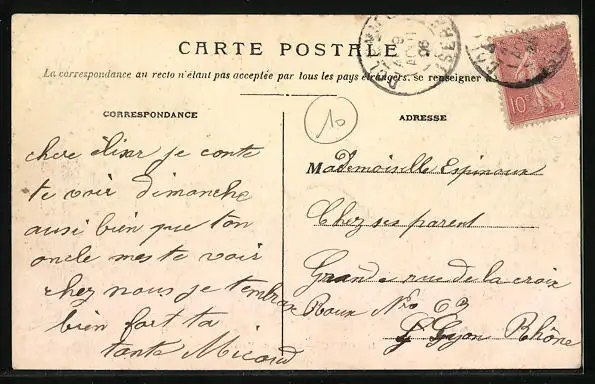 CARTE POSTALE
La correspondance au recto n'étant pas acceptée par tous les pays étrangers, se renseigner à
CORRESPONDANCE
chere élisa je conte
te voir dimanche
ausi bien que ton
oncle mes te voir
chez nous je tembrase
bien fort ta
tante Micoud
10
ADRESSE
Mademoiselle Espinoux
Chez ses parent
Grande rue de la croix
Roux No 63
Lyon Rhône
10c